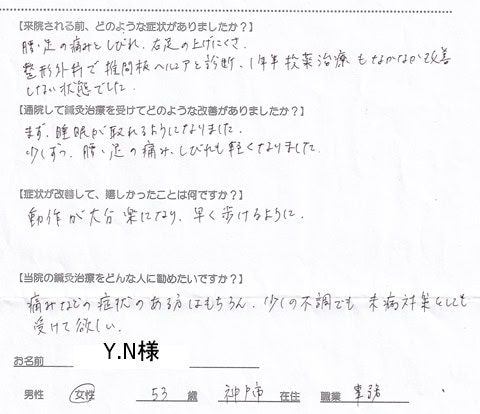 【来院される前、どのような症状がありましたか？】
腰・足の痛みとしびれ、右足の上げにくさ。
整形外科で椎間板ヘルニアと診断、1年半投薬治療もなかなか改善
しない状態でした。
【通院して鍼灸治療を受けてどのような改善がありましたか？】
まず、睡眠が取れるようになりました。
少しずつ、腰・足の痛み、しびれも軽くなりました。
【症状が改善して、嬉しかったことは何ですか？】
動作が大分楽になり、早く歩けるように。
【当院の鍼灸治療をどんな人に勧めたいですか？】
痛みなどの症状のある方はもちろん、少しの不調でも未病対策としても
受けて欲しい。
お名前 Y.N様
男性 女性 53 歳 神戸市 在住 職業 事務